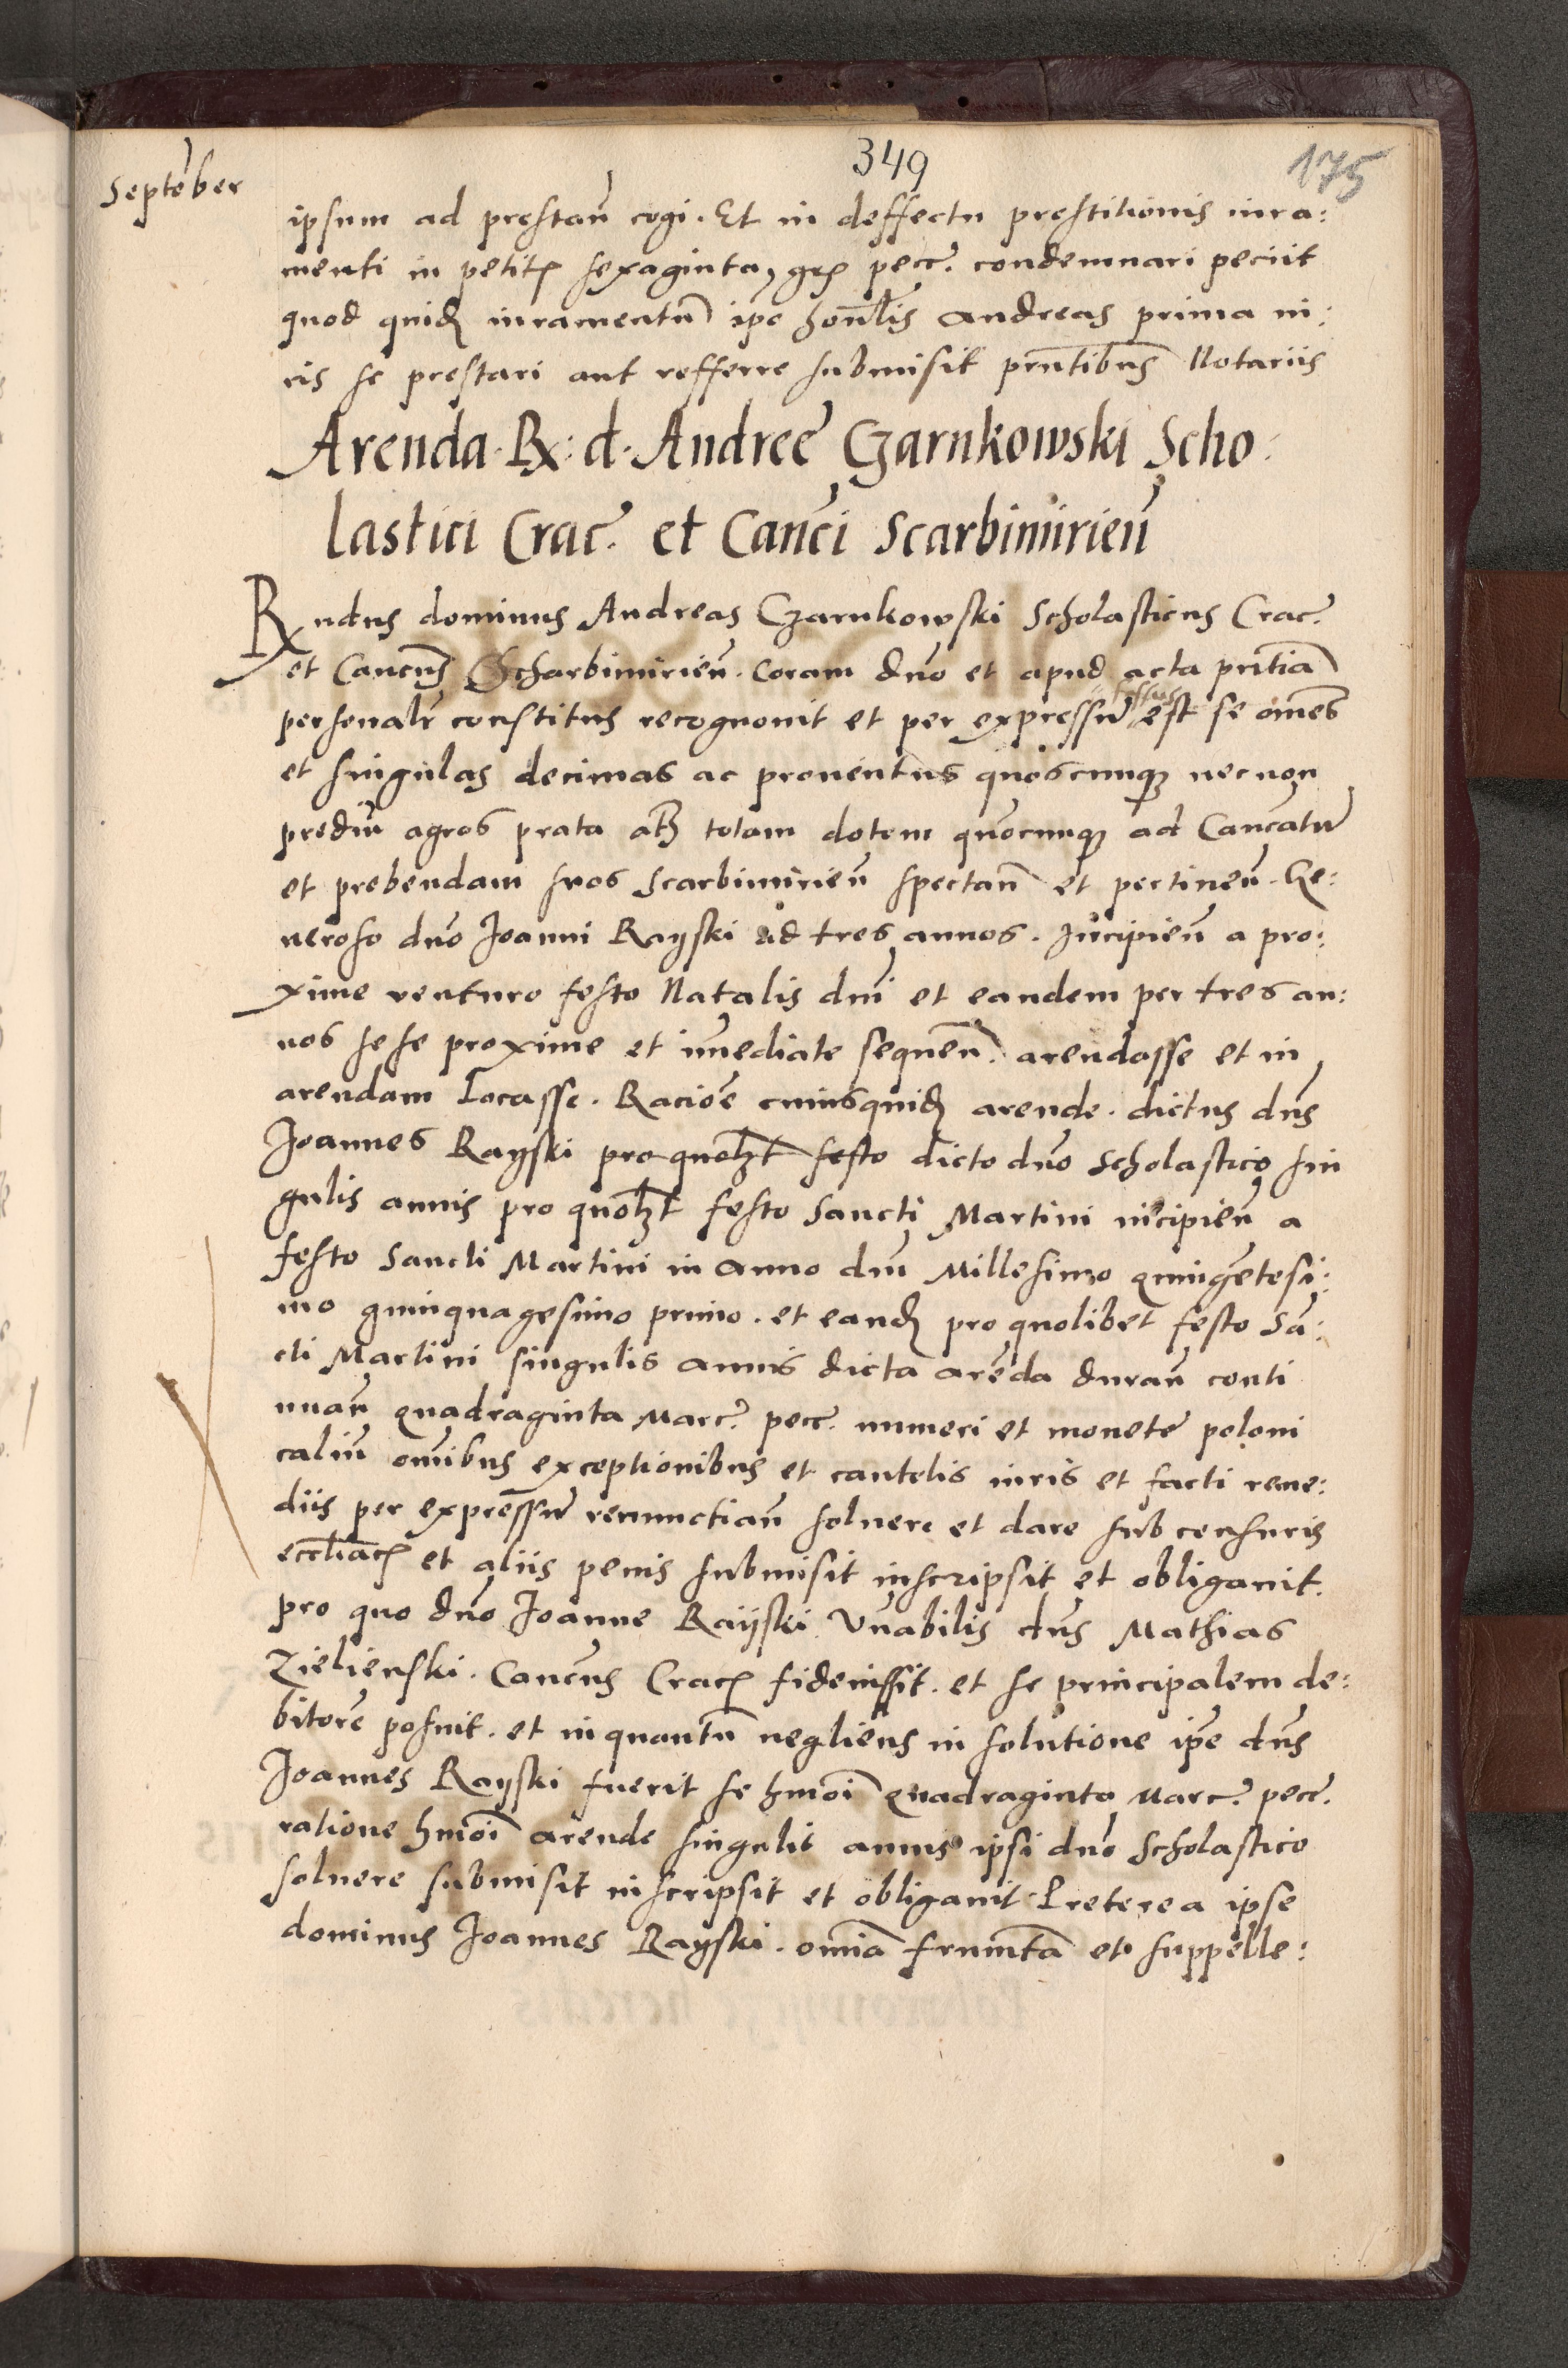 349
175
Septēber
ipsum ad prestan̄ cogi. Et in deffectu prestitionis iura:
menti in petitꝭ sexaginta, grꝭ pecc. condemnari peciit
quod quidꝫ iuramentū ip̄e hon̄lis Andreas prima iu:
ris se prestari aut refferre submisit prn̄tibus Notariis
Arenda Rx: d. Andree Czarnkowski Scho:
lastici Crac. et Can̄ci Scarbimirien̄
Rndus dominus Andreas Czarnkowski Scholasticus Crac.
et Canc̄us Scharbimirien̄. Coram dn̄o et apud acta prn̄tia
personalr̄ constitus recognouit et per expressū est se om̄es
fassus
et singulas decimas ac prouentus quoscunqꝫ necnon
prediū agros prata atqꝫ totam dotem quōcunqꝫ ad Can̄catū
et prebendam suos Scarbimirien̄ spectan̄ et pertinen̄. Ge:
neroso dn̄o Joanni Rayski ad tres annos. Incipien̄ a pro:
xime venturo festo Natalis dn̄i et eandem per tres an:
nos sese proxime et im̄ediate sequen̄. arendasse et in
arendam locasse. Raciōe cuiusquidꝫ arende. dictus dn̄s
Joannes Rayski pro quolꝫt festo dicto dn̄o Scholastico sin
gulis annis pro quolꝫt festo Sancti Martini incipien̄ a
festo Sancti Martini in Anno dn̄i Millesimo quingētesi:
mo quinquagesimo primo. et eandꝫ pro quolibet festo Sā:
cti Martini singulis annis dicta arēda duran̄ conti
nuan̄ quadraginta Marc. pecc. numeri et monete poloni
caliū om̄ibus exceptionibus et cautelis iuris et facti reme:
diis per expressū renunctian̄ soluere et dare sub censuris
eccl̄iacꝭ et aliis penis submisit inscripsit et obligauit.
pro quo dn̄o Joanne Raÿski Vn̄abilis dn̄s Mathias
Zielienski. Canc̄us Cracꝭ fideiussit. et se principalem de:
bitorē posuit. et inquantū negliens in solutione ip̄e dn̄s
Joannes Rayski fuerit se hmōi quadraginta Marc. pecc.
ratione hmōi arende singulis annis ipsi dn̄o Scholastico
soluere submisit inscripsit et obligauit Preterea ipse
dominus Joannes Rayski. omīa frumn̄ta et suppelle: